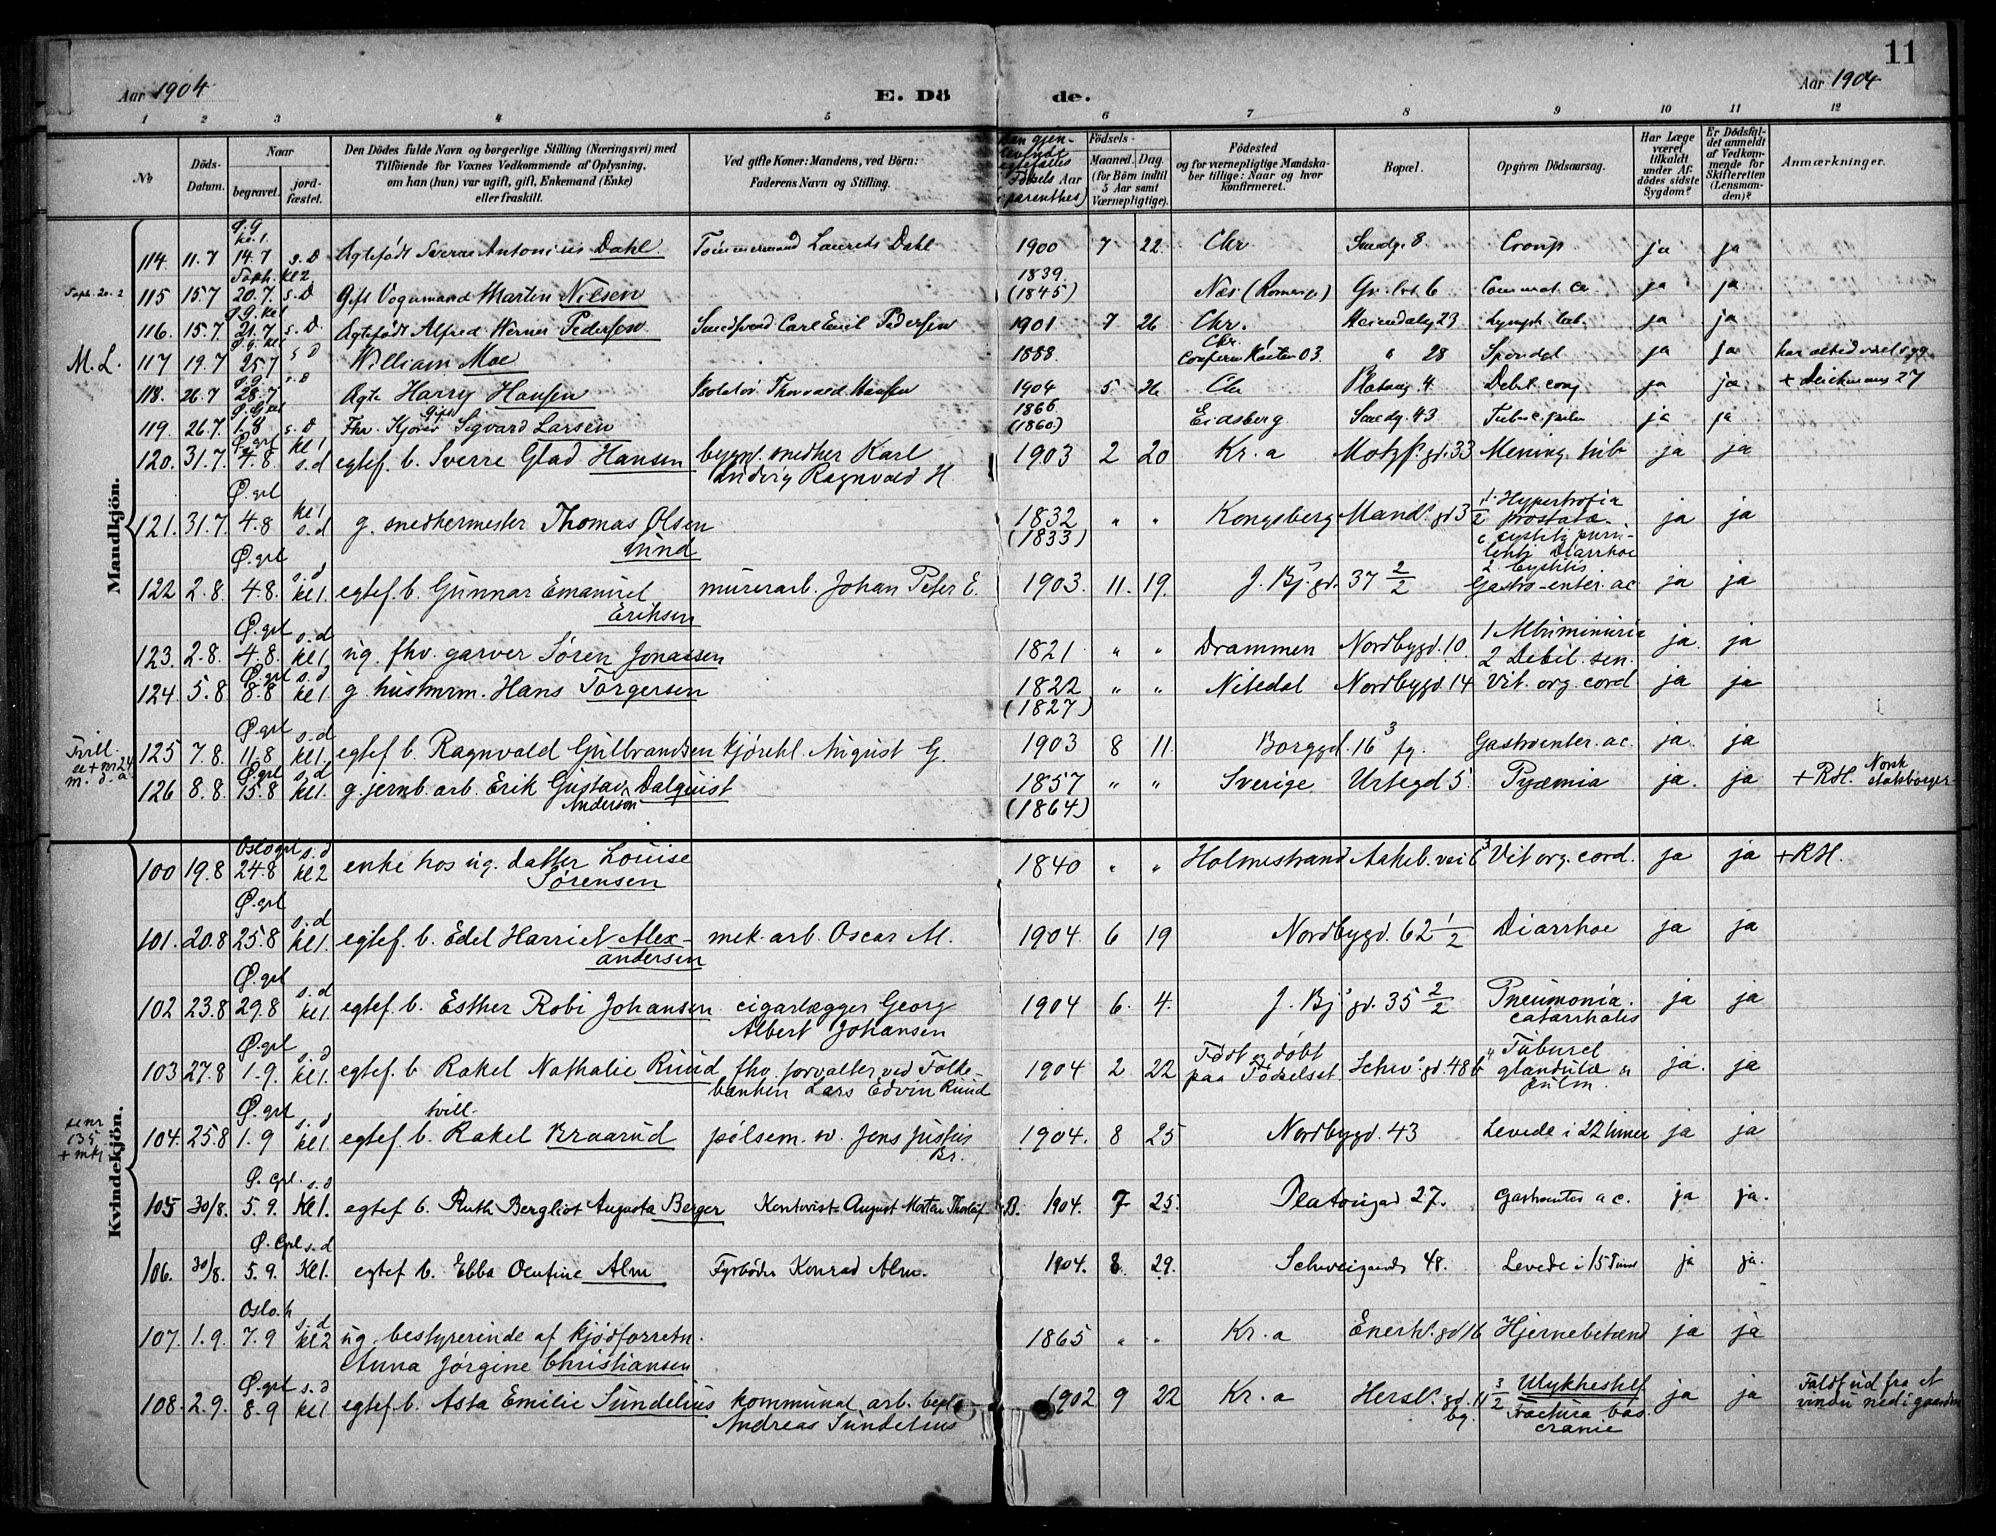 11
Aar 1904
E. Dö
de.
Aar 1904
1 2 3 4 5 6 7 8 9 10 11 12
No
Döds-Datum.
Naar
begravet.
jord-fæstet.
Den Dödes fulde Navn og borgerlige Stilling (Næringsvei) med
Tilföiende for Voxnes Vedkommende af Oplysning,
om han (hun) var ugift, gift, Enkemand (Enke)
eller fraskilt.
Ved gifte Koner: Mandens, ved Børn:
Faderens Navn og Stilling.
Födsels-
Maaned. Dag.
(for Börn indtil
5 Aar samt
Værnepligtige).
Födested
og for værnepligtige Mandska-
ber tillige: Naar og hvor
konfirmeret.
Bopæl.
Opgiven Dödsaarsag.
Har Læge
været
tilkaldt
under Af-
dödes sidste
Sygdom?
Er Dödsfal-
det anmeldt
af Vedkom-
mende for
Skifteretten
(Lensman-
den)?
Anmærkninger.
Mandkjön.
114. 11.7 14.7 s.D Ægtefødt Sverre Antonius Dahl. Tömmermand Laurits Dahl 1900 7 22. Chr Smedg. 8 Croup ja ja
115 15.7 20.7. s.D Gift Vognmand Marten Nilsen 1839. (1845) Næs (Romerige) ja ja
116. 15.7. 21.7 s.D. Ægtefødt Alfred Werner Pedersen Smedsvend Carl Emil Pedersen 1901 7 26 Chr. Heimdalsg 23 ja ja
M.L. 117 19.7 25.7 s d William Moe 1888. Chr. 28 ja ja
118. 26.7 28.7 s.D Ægte Harry Hansen Thorvald Hansen 1904 5 26 Chr Platoug. 4 Debil. cong ja ja + Deichmans 27
119. 26.7. 1.8 s.D Fhv. Kjører Gift Sigvard Larsen 1866 (1860) Eidsberg Smedg. 43 ja ja
120. 31.7. 4.8 Ø.grl kl 1 s.d egtef. b. Sverre Glad Hansen byggn. snedker Karl
Ludvig Ragnvald H. 1903 2 20 Kr.a Motzf. gd. 33 Mening. tub ja ja
121. 31.7. 4.8 Ø.grl kl 1 s.d g. snedkermester Thomas Olsen
Lund 1832 (1833) " " Kongsberg Mand. gd 3 1/2 1. Hypertrofia
prostatæ
c cystitis puru-
lenti Diarrhoe
2. Cystitis ja ja
122 2.8. 4.8. Ø.grl s.d kl 1. egtef. b. Gunnar Emanuel
Eriksen murerarb. Johan Peter E. 1903. 11. 19. J. Bj. gd. 37 2/2 Gastro-enter. ac. ja ja
123. 2.8. 4.8. Ø.grl s.d kl 1. ug. fhv. garver Søren Jonassen 1821 " " Drammen Nordbygd. 10. 1 Albuminuria
2 Debil. sen. ja. ja
124 5.8 8.8 Ø.grl s.d kl 1. g. husmrm. Hans Torgersen 1822 (1827) " " Nitedal Nordbygd. 14 Vit. org. cord ja ja
125 7.8. 11.8 Ø.grl s.d kl 1. egtef b. Ragnvald Gulbrandsen kjørekl. August G. 1903 8 11. Borggd. 16 3 fg. Gastroenter. ac. ja. ja
126 8.8. 15.8 Ø.grl s.d kl 1. g. jernb. arb. Erik Gustav Dalquist
Anderson 1857 (1864) " " Sverige Urtegd 5. Pyæmia ja. ja + RH. Norsk
statsborger
Kvindekjön.
100 19.8 24.8 Oslo grl s.d kl 2 enke hos ug. datter Louise
Sørensen 1840 " " Holmestrand Aakeb. vei 6 3 Vit org. cord. ja ja + RH.
101. 20.8 25.8 Ø.grl s.d kl 1. egtef. b. Edel Harriet Alex-
andersen mek. arb. Oscar A. 1904. 6 19 Nordbygd. 62 1/2 Diarrhoe ja ja
102 23.8 29.8 Ø.grl s.d kl 1. egtef. b. Esther Robi Johansen. cigarlægger Georg
Albert Johansen 1904 6. 4. J. Bj. gd. 35 2/2 Pneumonia.
catarrhalis ja ja
103 27.8 1.9. Ø.grl s.d kl 1. egtef. b. Rakel Nathalie Ruud fhv. forvalter ved Folke-
banken Lars Edvin Ruud 1904 2 22 Født og døbt
paa Fødselsst Schw. gd. 48 b Tubercl
glandulæ
pulm. ja. ja
104. 25.8 1.9 Ø.grl s.d kl 1. tvill. egtef. b. Rakel Braarud pølsem. Jens Justus
Br. 1904. 8 25 Nordbygd. 43 Levede i 22 timer ja ja
105 30/8. 5.9. Ø. Grl. s.d Kl 1. egtef b. Ruth Bergliot Augusta Berger Kontorist August Morten Thorleif B. 1904. 7 25. Platougad 27. Gastroenter a c. ja ja.
106. 30/8. 5.9. Ø. Grl s.d Kl 1. egtef b. Ebba Olufine Alm Fyrbøder Konrad Alm. 1904. 8 29. Schweigaards 48. Levede i 15 Tim ja ja.
107. 1.9. 7.9 Oslo. k s.d kl 2 ug. bestyrerinde af kjødforretn.
Anna Jørgine Christiansen 1865 " " Kr.a Enerh. gd 16 Hjernebetænd ja ja
108. 2.9. 8.9 Ø.grl s.d kl 1 egtef b. Asta Emilie Sundelius kommunal arb.
Andreas Sundelius 1902 9 22 Kr.a Hersl. gd. 11 3/2
bg. Ulykkestilf
Fractura bas.
cranie ja ja Faldt ud fra et
vindu ned i gaarden